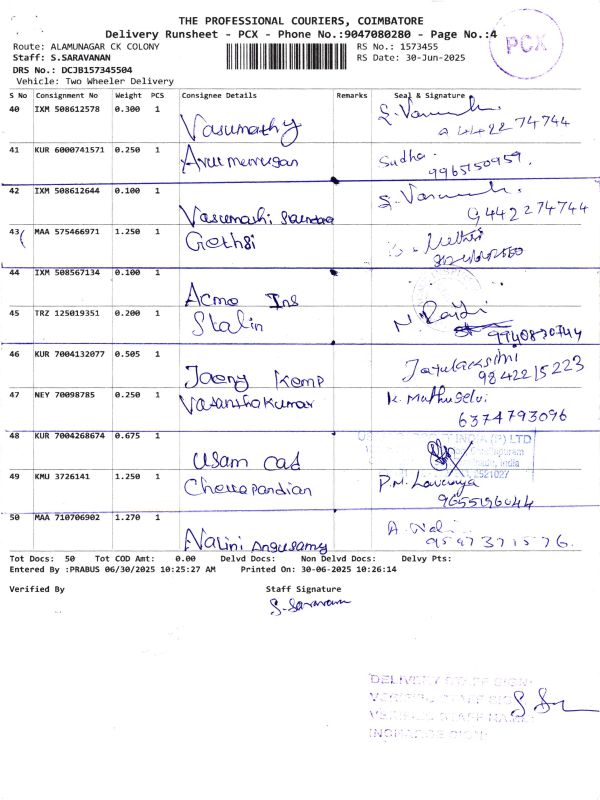 THE PROFESSIONAL COURIERS, COIMBATORE
Delivery Runsheet - PCX - Phone No.:9047080280 - Page No.:4
PCX
Route: ALAMUNAGAR CK COLONY
RS No.: 1573455
Staff: S.SARAVANAN
RS Date: 30-Jun-2025
DRS No.: DCJB157345504
Vehicle: Two Wheeler Delivery
S No Consignment No Weight PCS Consignee Details Remarks Seal & Signature
40 IXM 508612578 0.300 1
Vasumathy
9442274744
41 KUR 6000741571 0.250 1
Arumurugan Sudha.
9965150959.
42 IXM 508612644 0.100 1
Vasumathi
9442274744
43 MAA 575466971 1.250 1
Gethsi
44 IXM 508567134 0.100 1
Acmo Ins
45 TRZ 125019351 0.200 1
Stalin
9940830744
46 KUR 7004132077 0.505 1
Jaeny Kemp Jayalakshmi
9842215223
47 NEY 70098785 0.250 1
Vasanthakumar K. Muthuselvi
6374793096
48 KUR 7004268674 0.675 1
Usam Cad
INDIA (P) LTD
49 KMU 3726141 1.250 1
Chellapandian P.M. Lavanya
9655196044
50 MAA 710706902 1.270 1
Nalini Angusamy
Tot Docs: 50 Tot COD Amt: 0.00 Delvd Docs: Non Delvd Docs: Delvy Pts:
Entered By :PRABUS 06/30/2025 10:25:27 AM Printed On: 30-06-2025 10:26:14
Verified By Staff Signature
S. Saravanan
DELIVERY STAFF SIGN:
VERIFIED STAFF SIGN
VERIFIED STAFF NAME:
INCHARGE SIGN: